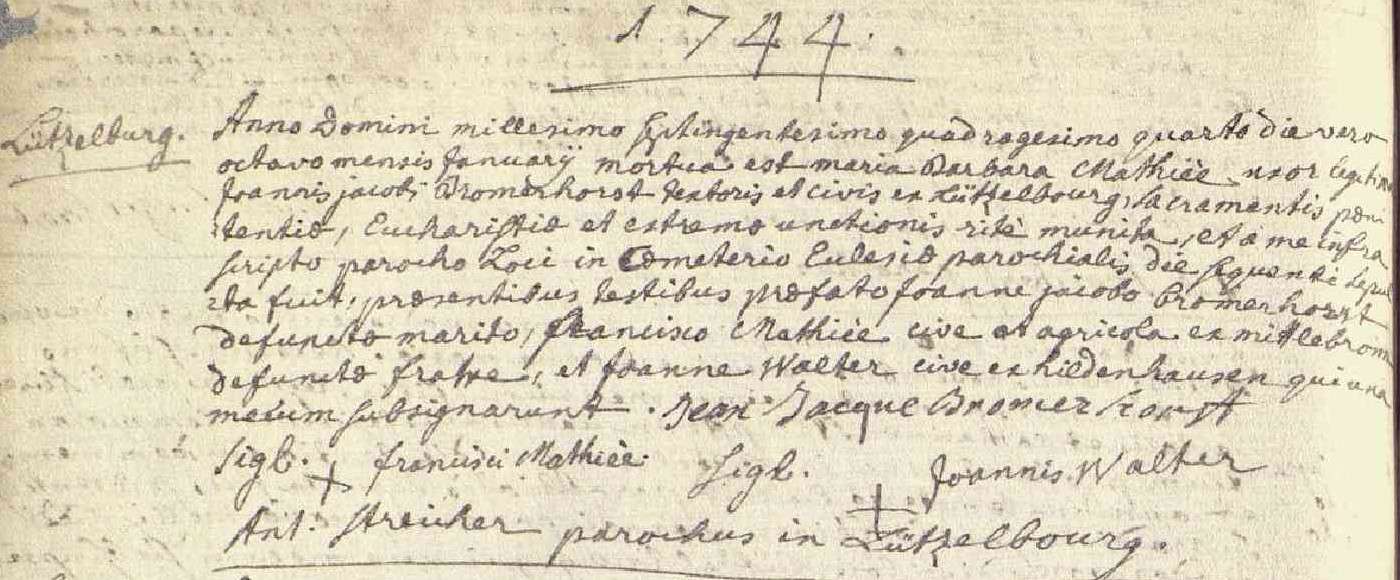 1744.
Lützelburg.
Anno Domini millesimo septingentesimo quadragesimo quarto die vero
octavo mensis Januarij mortua est maria Barbara Mathiæ uxor legitim
Joannis jacobi Bromerhorst textoris et civis ex Lützelbourg, sacramentis pœni
tentiæ, Eucharistiæ et extremæ unctionis ritè munita, et a me infra
scripto parocho Loci in Cœmeterio Eclesiæ parochialis die sequenti sepul
ta fuit, præsentibus testibus præfato Joanne jacobo bromerhorst
defunctæ marito, francisco Mathiæ cive et agricola ex mittlebron
defunctæ fratre, et Joanne Walter cive ex hildenhausen qui una
mecum subsignarunt. Jean Jacque Bromer horst
Sigl. + francisci Mathiæ. Sigl. + Joannis Walter
Ant: Streicher parochus in Lützelbourg.